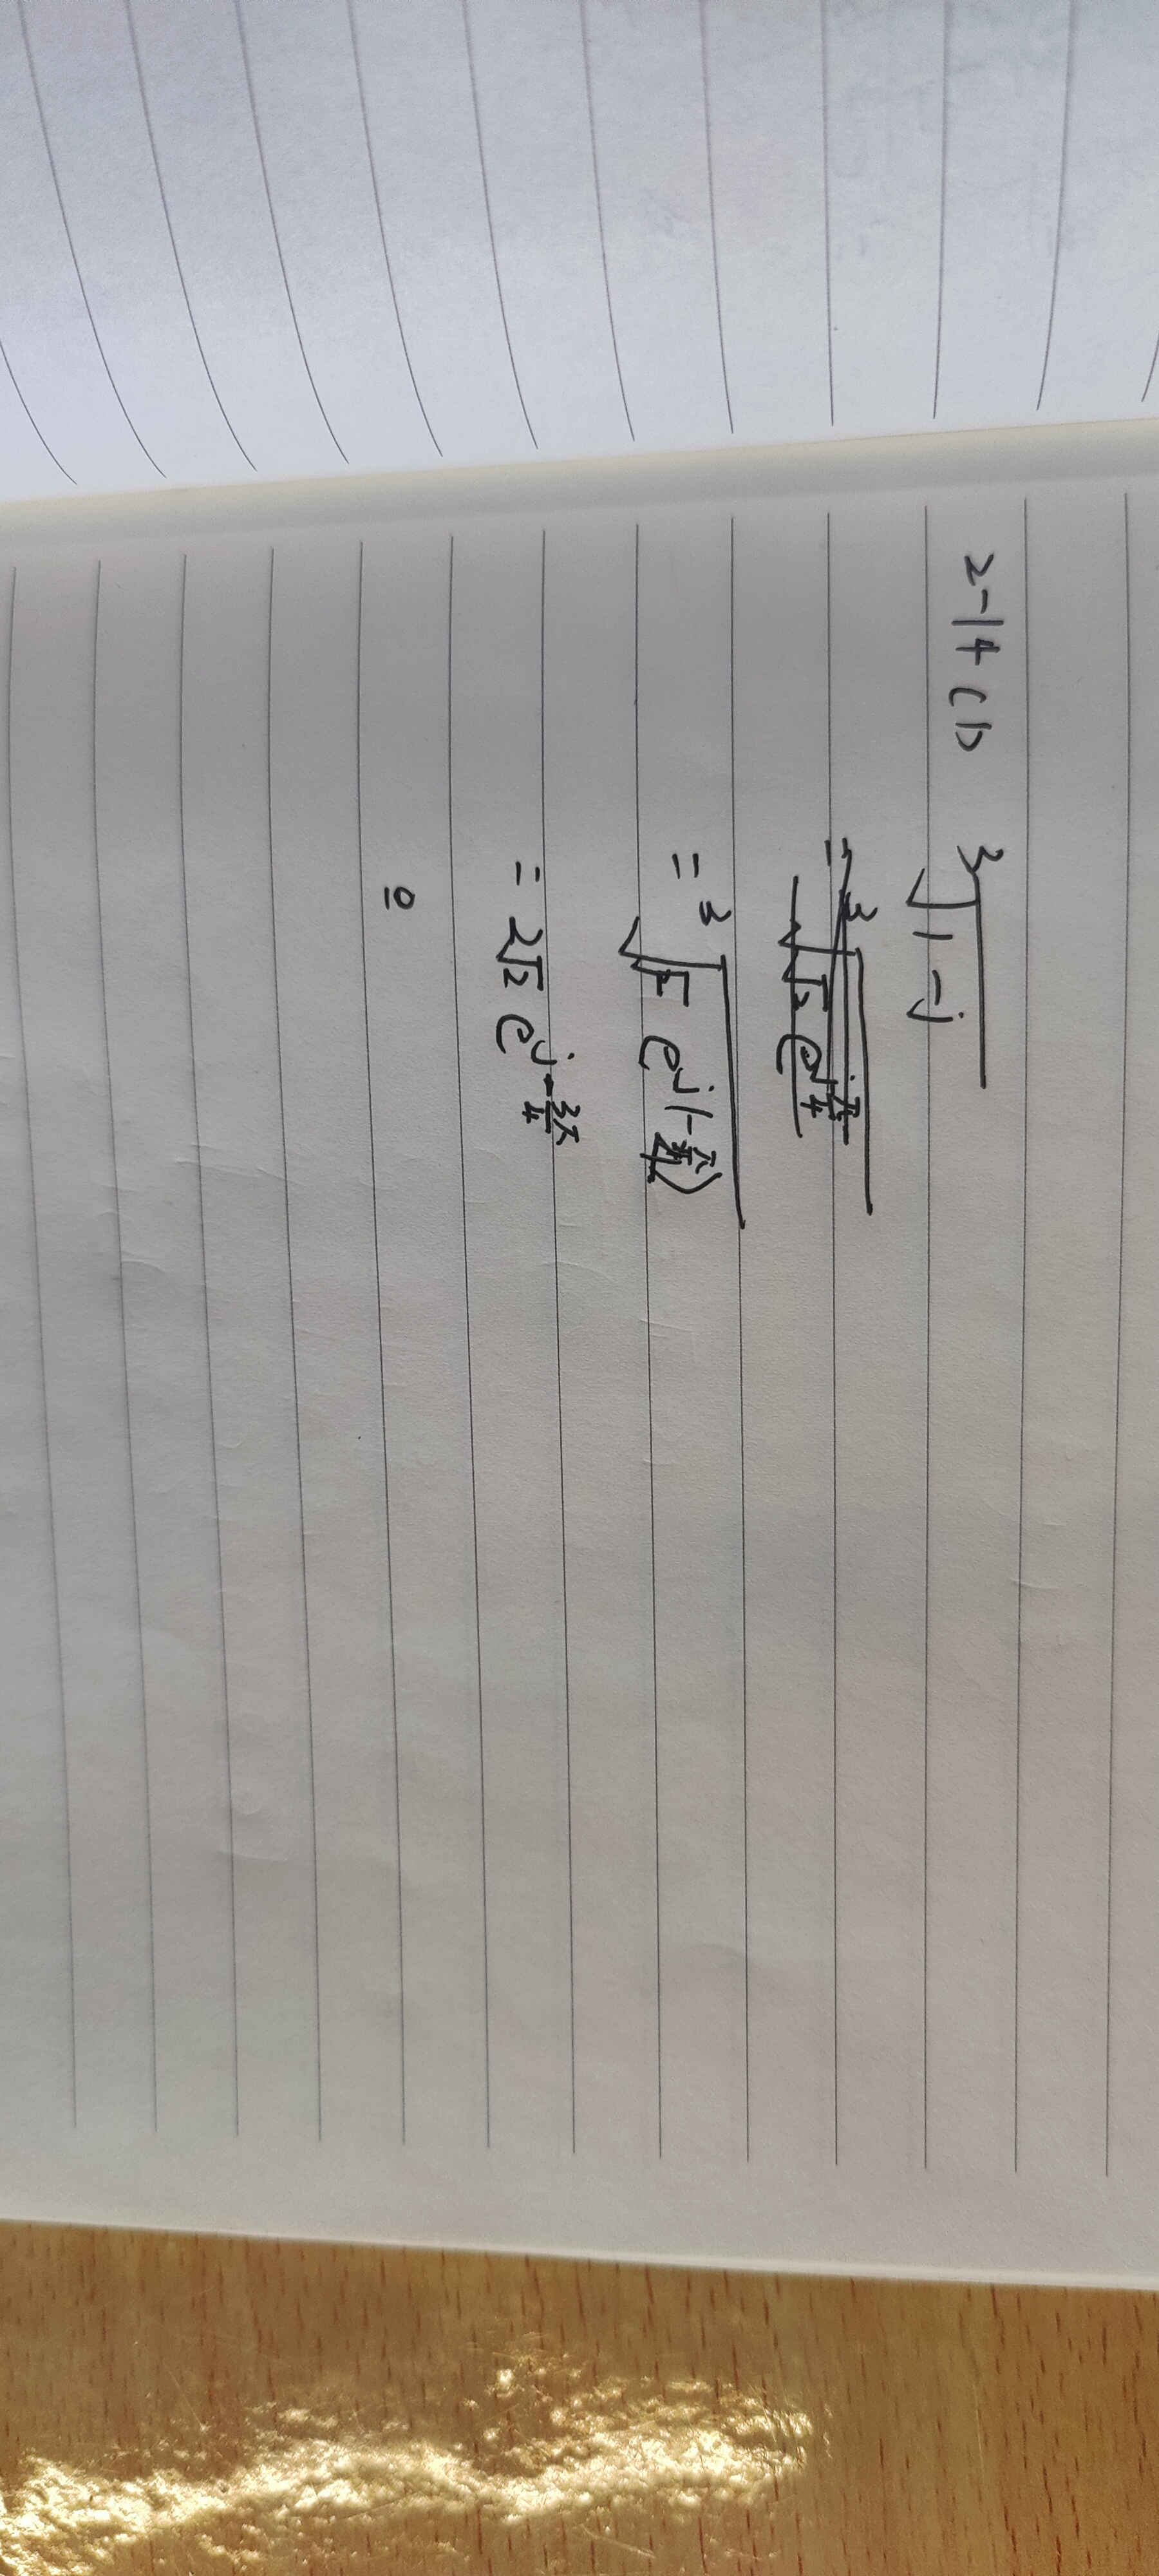 2-14 (1) ∛(1-j)
= ∛(√2 e^(j π/4))
= ∛(√2 e^(j(-π/4)))
= 2√2 e^(j-3π/4)